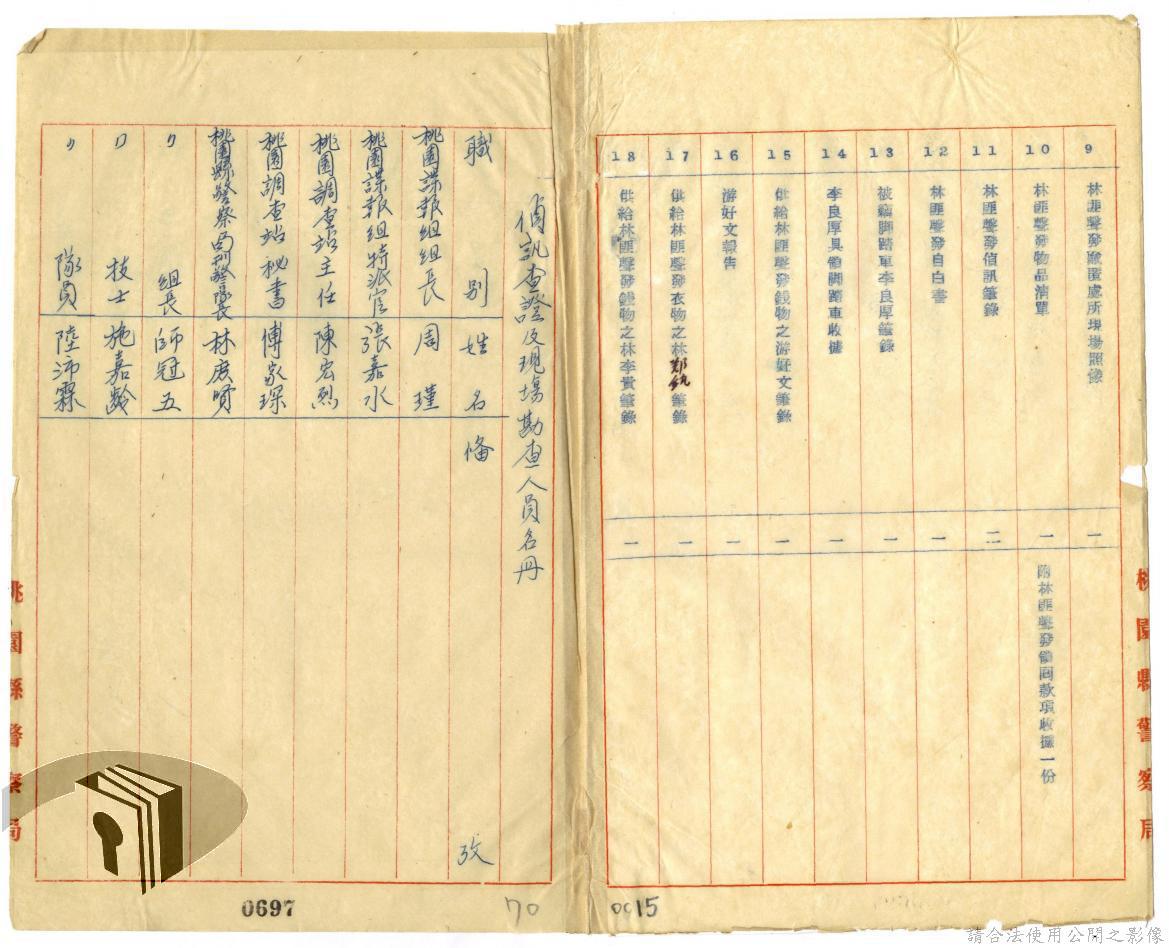 9 林匪聲發藏匿處所現場照像 一
10 林匪聲發物品清單 一 附林匪聲發領回款項收據一份
11 林匪聲發偵訊筆錄 二
12 林匪聲發自白書 一
13 被竊脚踏車李良厚筆錄 一
14 李良厚具領脚踏車收據 一
15 供給林匪聲發錢物之游好文筆錄 一
16 游好文報告 一
17 供給林匪聲發衣物之林鄭 筆錄 一
18 供給林匪聲發錢物之林李貴筆錄 一
桃園縣警察局
0015
偵訊查證及現場勘查人員名冊
職別 姓名 備攷
桃園諜報組組長 周瑾
桃園諜報組特派官 張嘉水
桃園調查站主任 陳宏烈
桃園調查站秘書 傅家琛
桃園縣警察局刑警隊長 林
〃 組長 師冠五
〃 技士 施嘉齡
〃 隊員 陸沛霖
桃園縣警察局
0697
70
請合法使用公開之影像